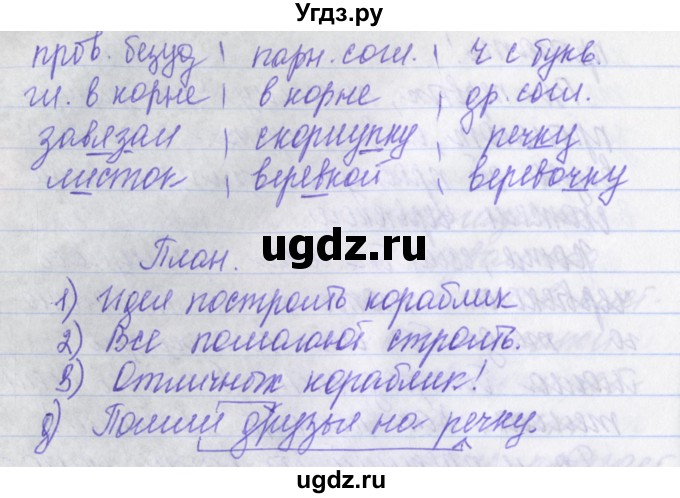 Угдз.ру
пров. безуд | парн. согл. | ч с букв.
гл. в корне | в корне | др. согл.
завязал | скорлупку | речку
листок | веревкой | веревочку
План.
ugdz.ru
1) Идея построить кораблик
2) Все помогают строить.
3) Отличных кораблик!
д) Пошли друзья на речку.
ugdz.ru